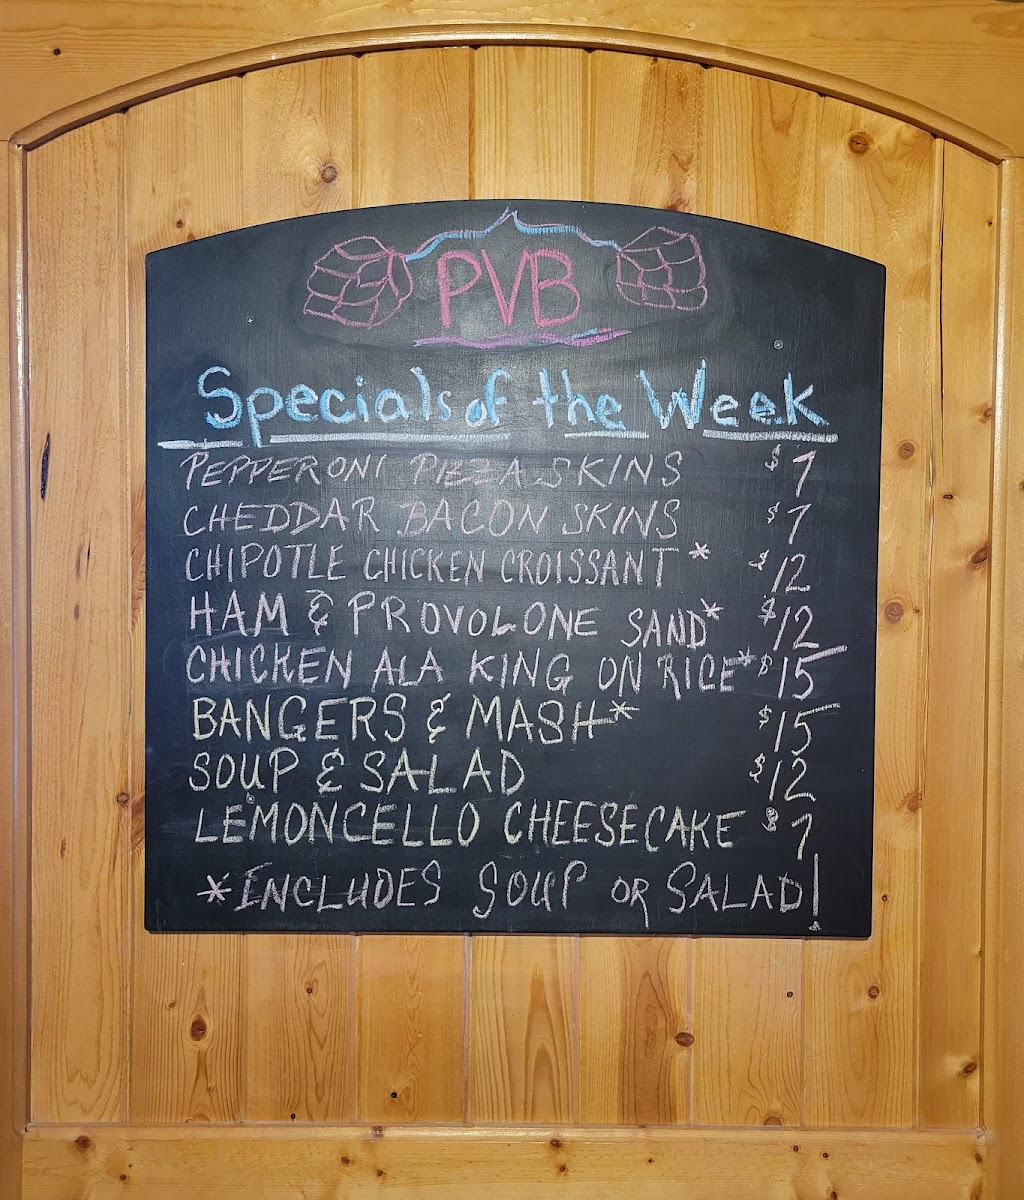 PVB
Specials of the Week
PEPPERONI PIZZA SKINS $7
CHEDDAR BACON SKINS $7
CHIPOTLE CHICKEN CROISSANT* $12
HAM & PROVOLONE SAND* $12
CHICKEN ALA KING ON RICE* $15
BANGERS & MASH* $15
SOUP & SALAD $12
LEMONCELLO CHEESECAKE $7
*INCLUDES SOUP OR SALAD!